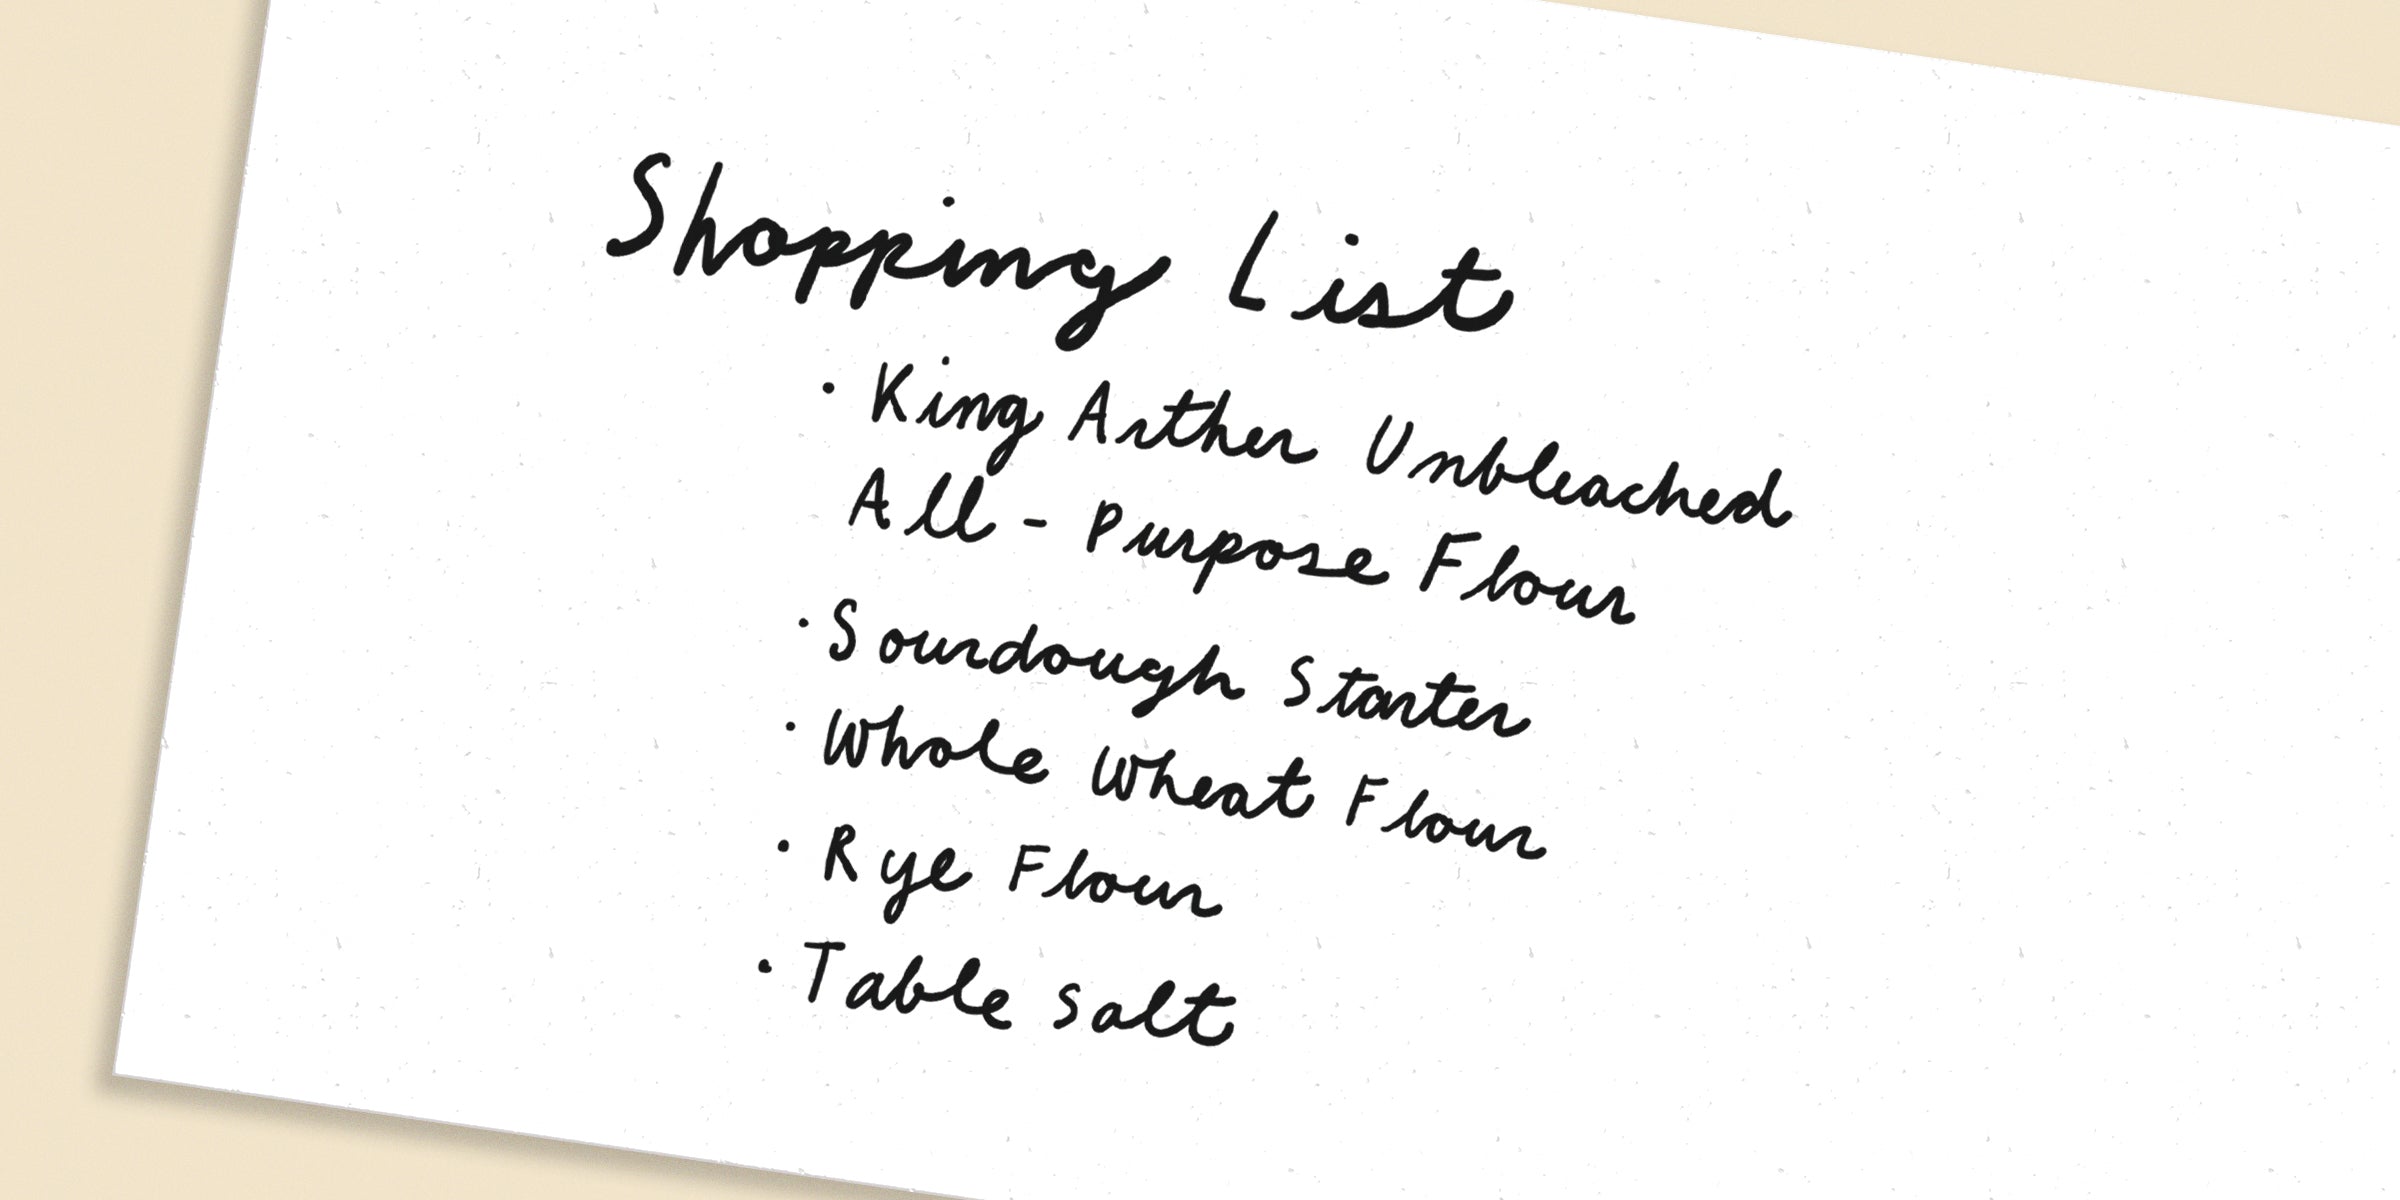 Shopping List
• King Arther Unbleached
All-Purpose Flour
• Sourdough Starter
• Whole Wheat Flour
• Rye Flour
• Table Salt